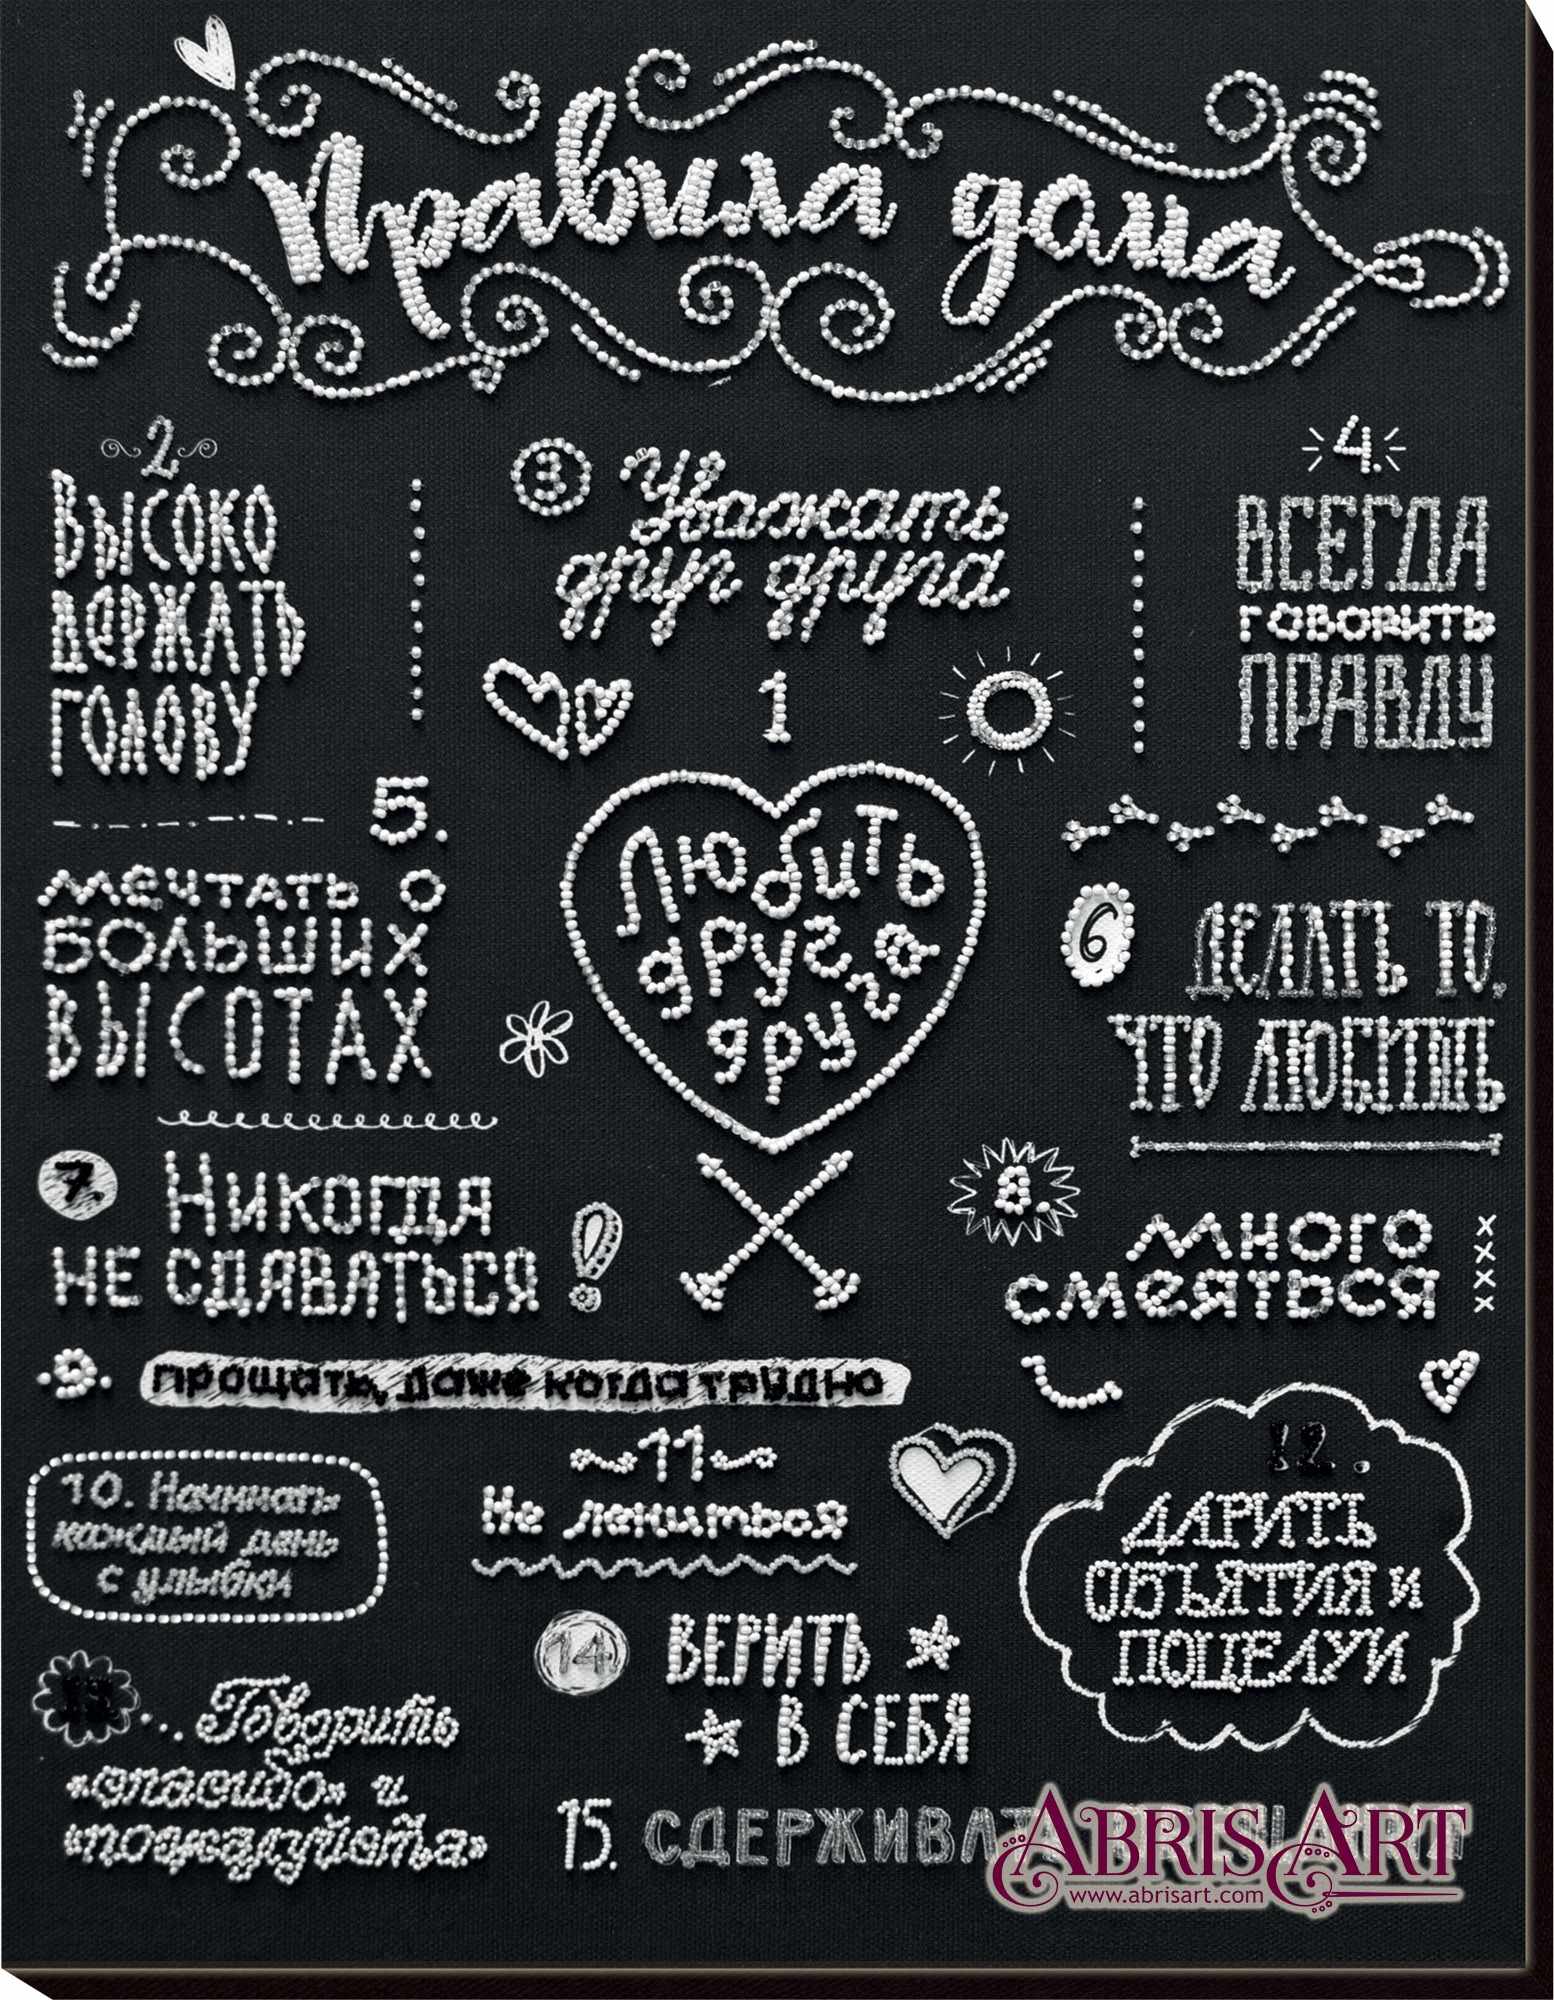 Правила дома
2
Высоко
держать
голову
3
Уважать
друг друга
4.
ВСЕГДА
говорить
ПРАВДУ
1
Любить
друг
друга
5.
мечтать о
больших
высотах
6
ДЕЛАТЬ ТО,
ЧТО ЛЮБИШЬ
7.
Никогда
не сдаваться
8.
много
смеяться
9.
прощать, даже когда трудно
10. Начинать
каждый день
с улыбки
11
Не лениться
12.
ДАРИТЬ
ОБЪЯТИЯ и
ПОЦЕЛУИ
13... Говорить
«спасибо» и
«пожалуйста»
14.
ВЕРИТЬ
В СЕБЯ
15.
ABRIS ART
www.abrisart.com